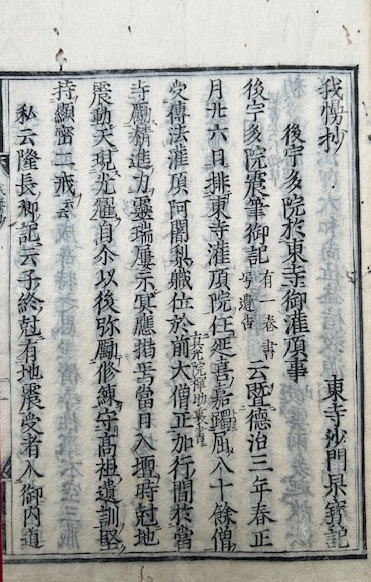 我慢抄　東寺沙門杲寳記
後宇多院於東寺御灌頂事
後宇多院宸筆御記有一巻書号遺告云曁德治三年春正
月廿六日排東寺灌頂院任延喜嘉躅屈八十餘僧
受傳法灌頂阿闍梨職位於前大僧正真光院禅助裏書加行間於當
寺勵精進力靈瑞屢示冥應揭焉當日入壇時尅地
震動天現光曜自尒以後弥勵修練守高祖遺訓堅
持顯密二戒云云
私云隆長卿記云子終尅有地震受者入御内道